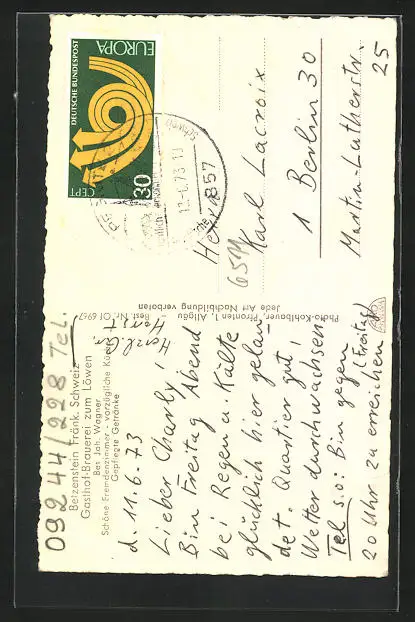 09244/228 Tel.
Betzenstein Fränk. Schweiz
Gasthof-Brauerei zum Löwen
Bes. Joh. Wagner
Schöne Fremdenzimmer - vorzügliche Küche
Gepflegte Getränke
d. 11.6.73
Lieber Charly!
Bin Freitag Abend
bei Regen u. Kälte
glücklich hier gelan-
det. Quartier gut!
Wetter durchwachsen
Tel s.o: Bin gegen
20 Uhr zu erreichen
(Freitag)
Herzl. Gr.
Horst
Photo-Kohlbauer, Pfronten 1, Allgäu Best. Nr. Of 6967
Jede Art Nachbildung verboten
DEUTSCHE BUNDESPOST
EUROPA
CEPT
30
12.-6.73
857
Herrn
Karl Lacroix
1 Berlin 30
Martin-Lutherstr.
25